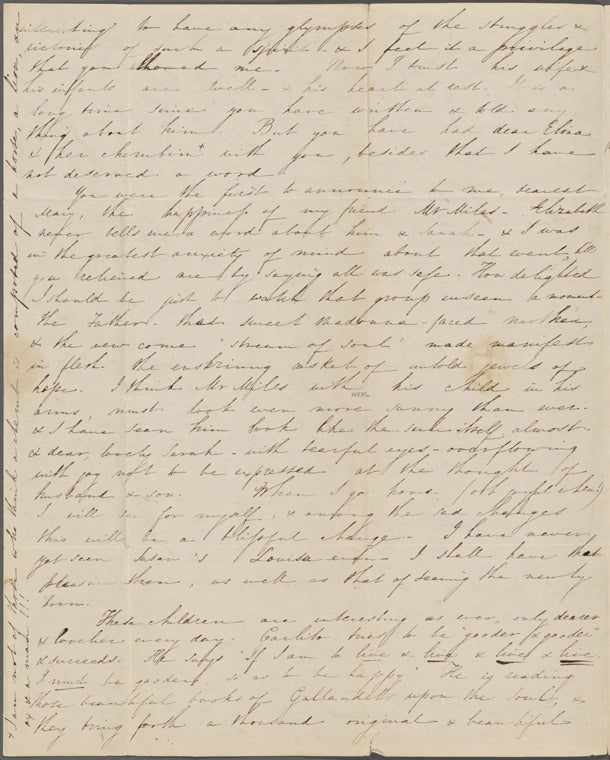 interesting to have any glympses of the struggles &
victories of such a spirit - & I feel it a privilege
that you showed me. Now I trust his wife &
his infants are well - & his heart at rest. It is a
long time since you have written & told any
thing about him. But you have had dear Eliza
& (her cherubim+ with you, besides that I have
not deserved a word.
You were the first to announce to me, dearest
Mary, the happiness of my friend Mr Miles - Elizabeth
never tells me a word about him & Sarah - & I was
in the greatest anxiety of mind about that event, till
you relieved me by saying all was safe. How delighted
I should be just to watch that group unseen a moment -
The Father - that sweet Madonna-faced mother,
& the new come "stream of soul" made manifest
in flesh the enshrining casket of untold jewels of
hope. I think Mr Miles with his child in his
arms, must look even more sunny than ever -
& I have seen him look like the sun itself, almost.
& dear, lovely Sarah - with tearful eyes - overflowing
with joy not to be expressed at the thought of
husband & son. When I go home, (oh when!)
I will see for myself, & among the sad changes
this will be a blissful change. I have never
yet seen Susan's Louisa even - I shall have that
pleasure then, as well as that of seeing the newly
born.
These children are interesting as ever, only dearer
& lovelier every day. Carlito tries to be "gooder & gooder"
& succeeds. He says "If I am to live & live & live & live
I must be gooder, so as to be happy" He is reading
those beautiful books of Gallaudet's upon the Soul, &
they bring forth a thousand original & beautiful
+ I am not of those who think a cherub is composed of a hoof, a lion, an
ox & a man!!!
NYPL